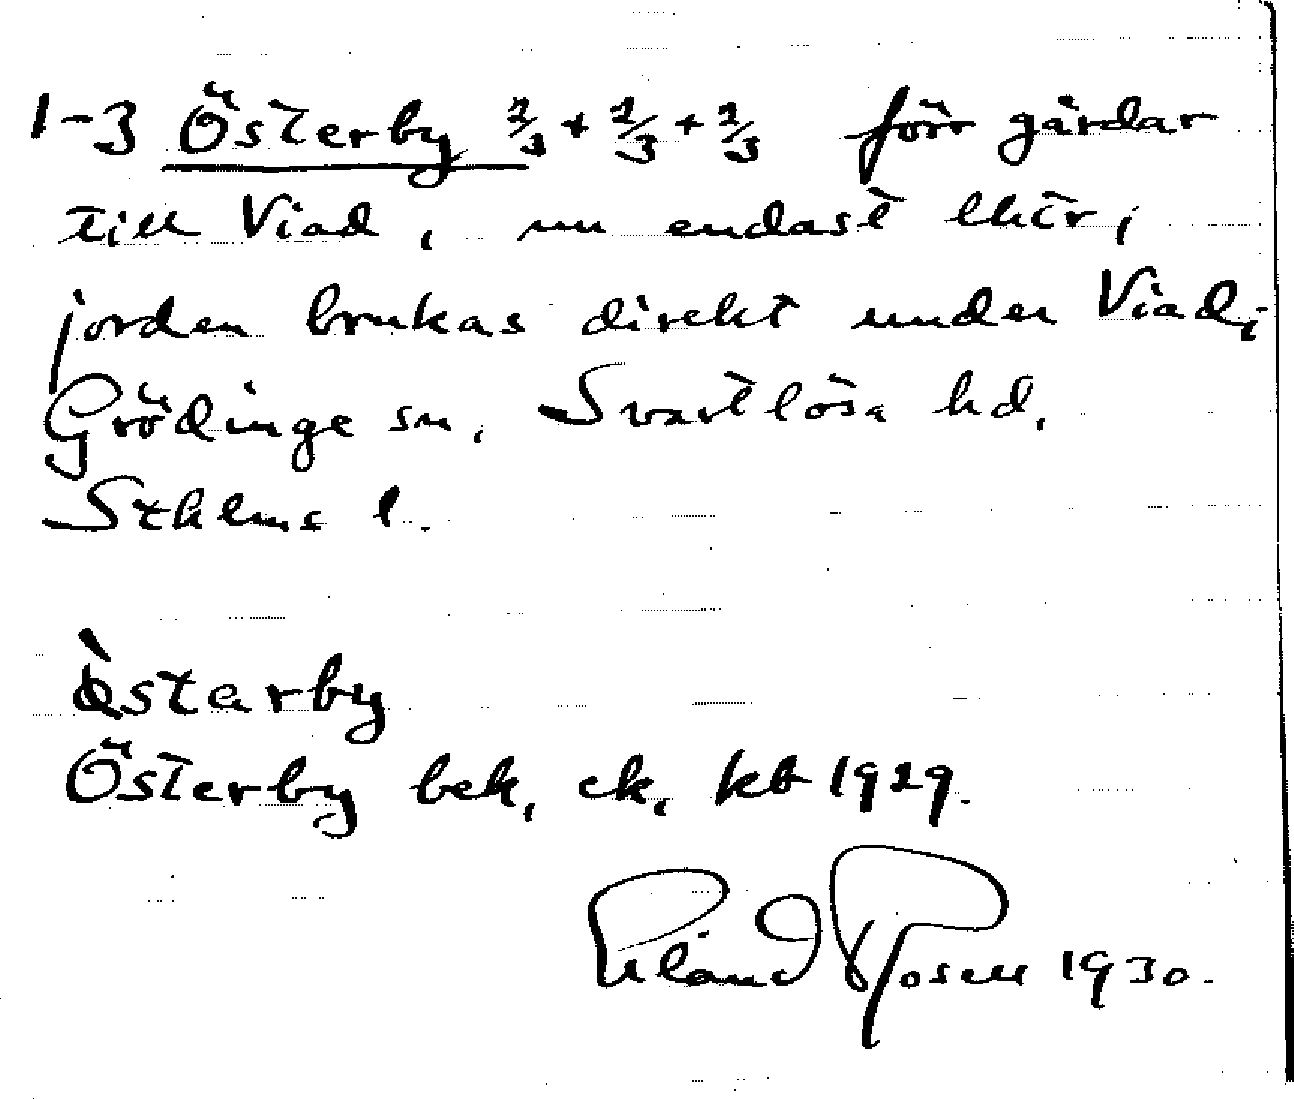 1-3 Österby 2/3 + 2/3 + 2/3 förr gårdar
till Viad, nu endast lhtr,
jorden brukas direkt under Viad;
Grödinge sn, Svartlösa hd,
Sthlms l.
Östarby
Österby bek, ck, kb 1929.
Rosell 1930.